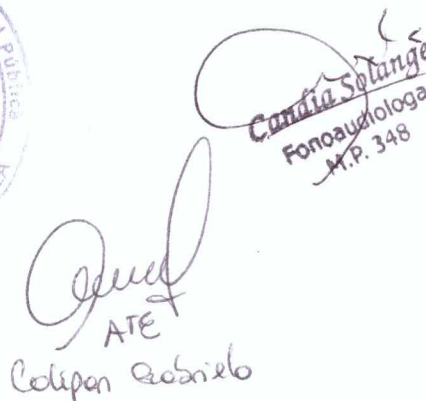 Pública
Candia Solange
Fonoaudiologa
M.P. 348
ATE
Colipan Gabriela